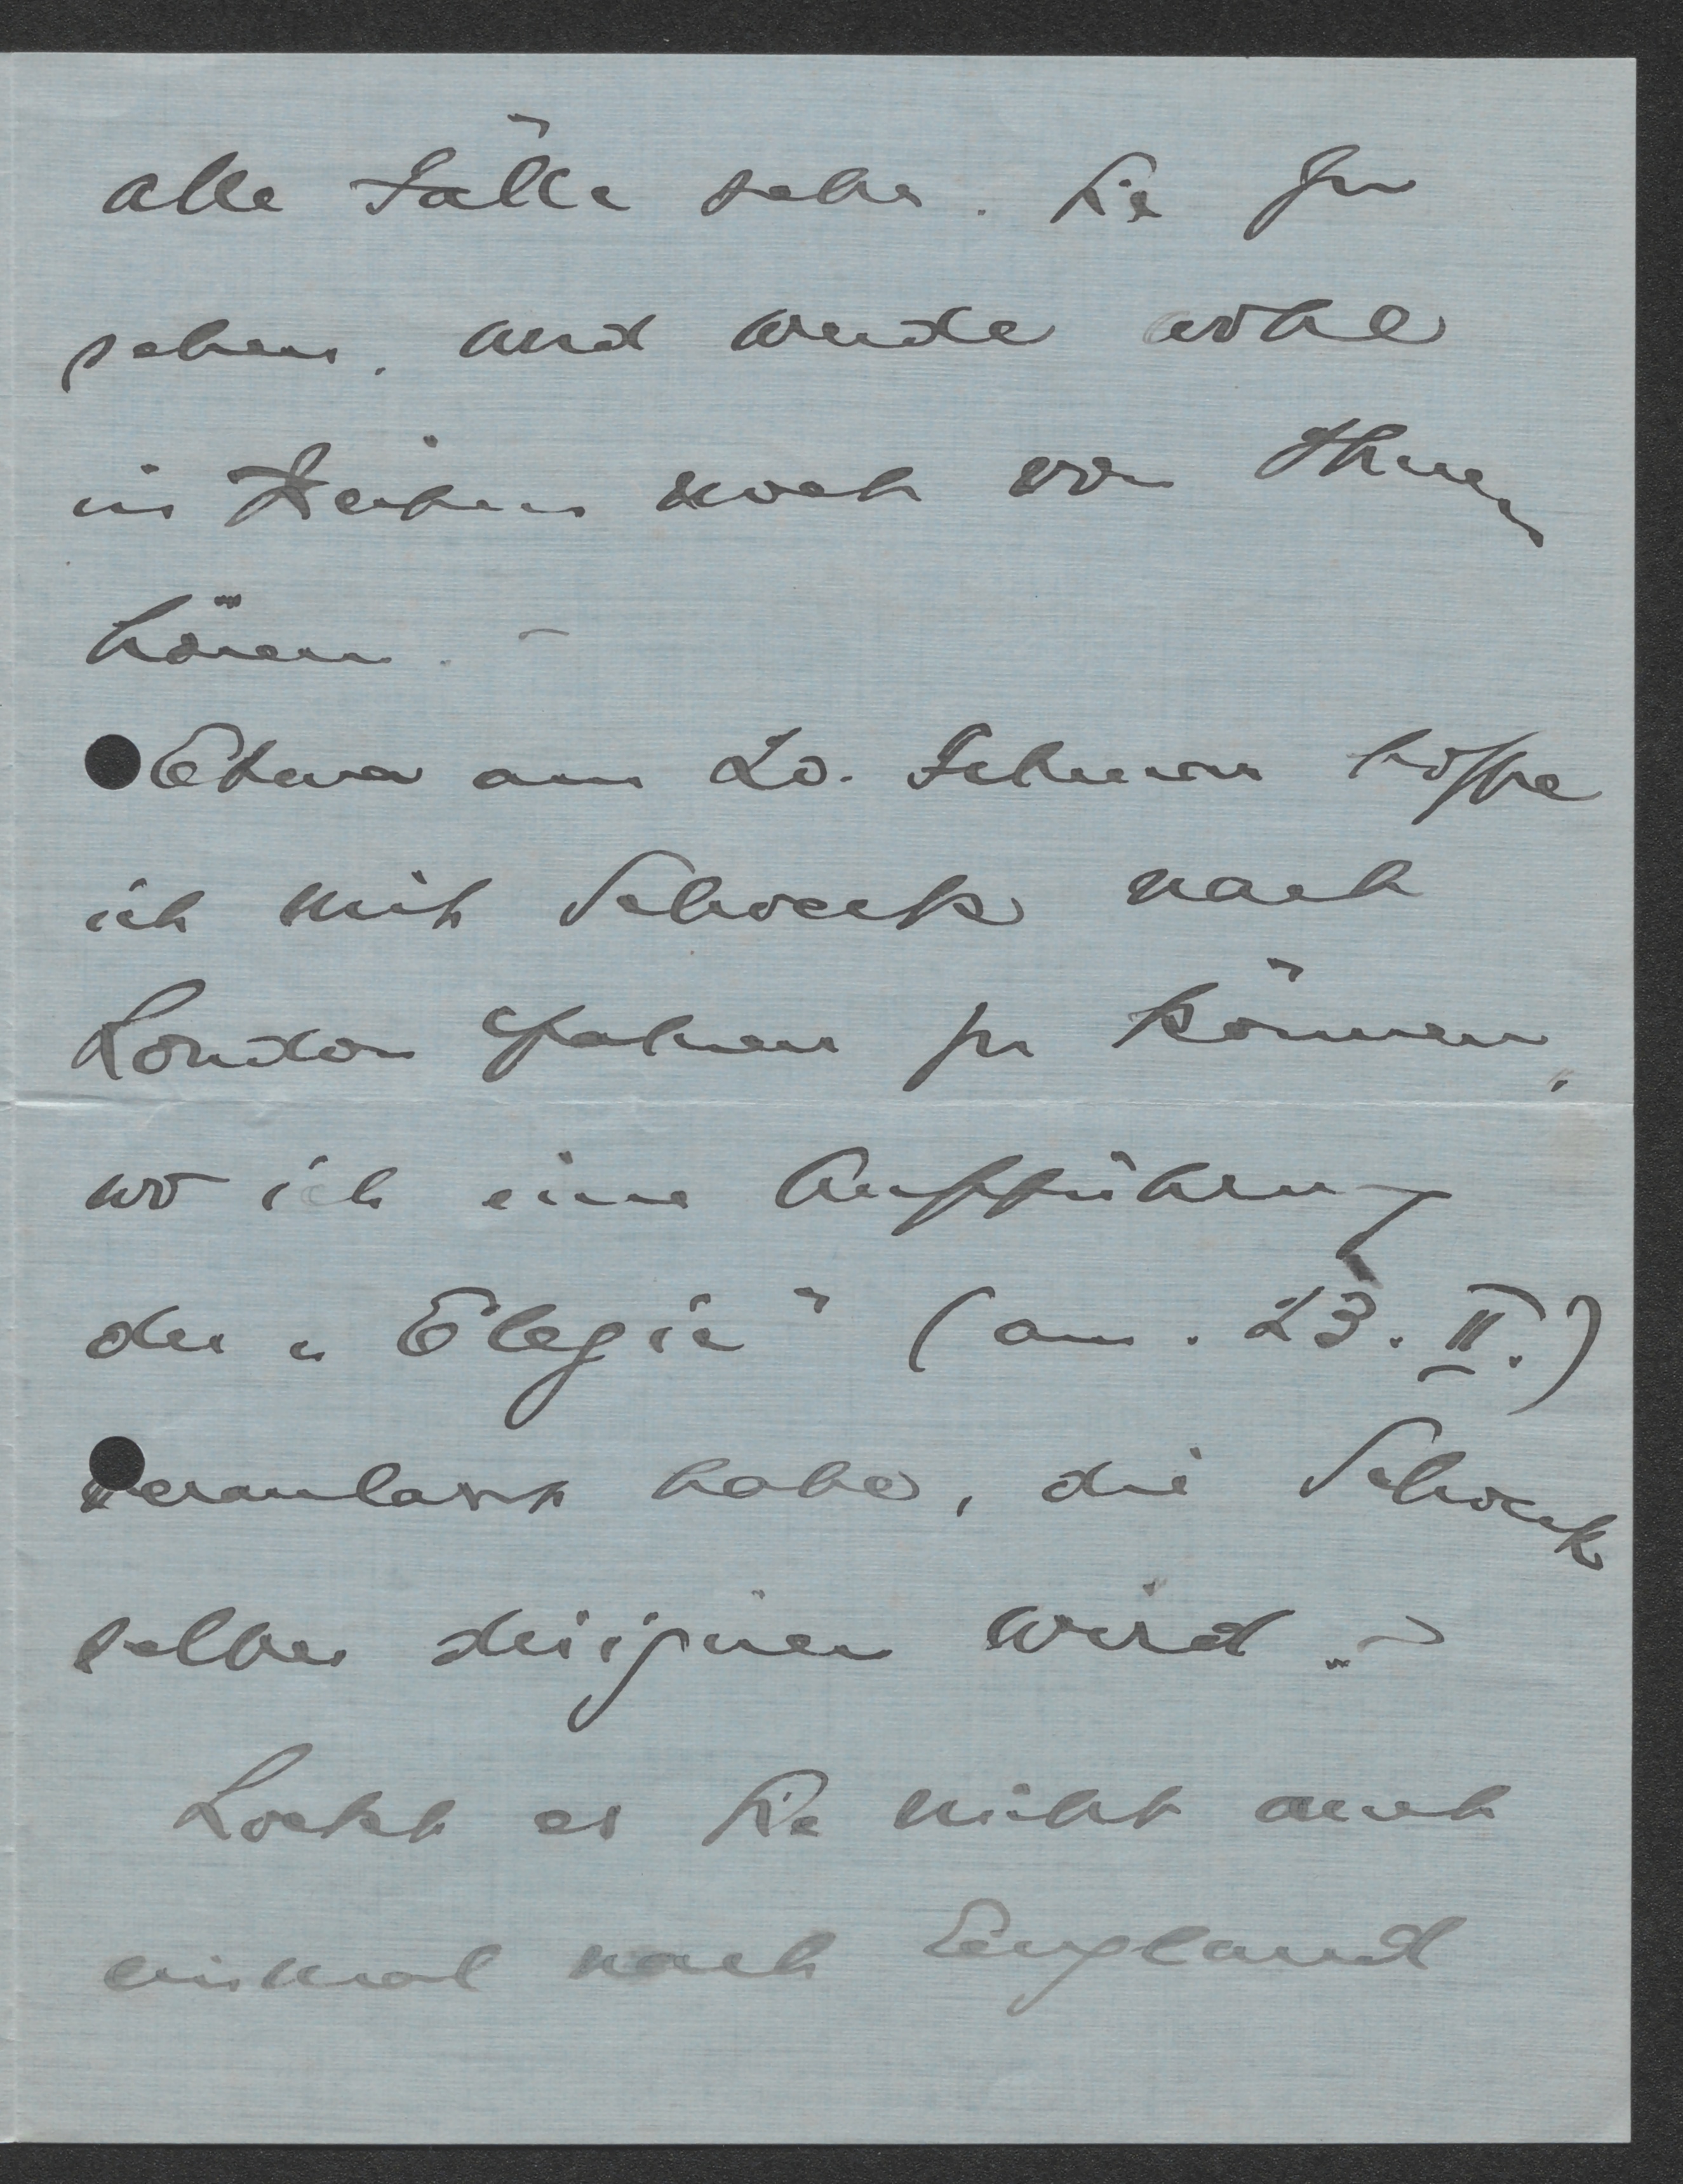 alle Fälle sehr. Sie zu
sehen. und werde wohl
in                noch von Ihnen
hören. –
Etwa am 20. Februar hoffe
ich mit Schoeck nach
London fahren zu können,
wo ich eine Aufführung
der „Elegie" (am. 23. II.)
veranlasst habe, die Schoeck
selber dirigieren wird. –
Lockt es Sie nicht auch
einmal nach England